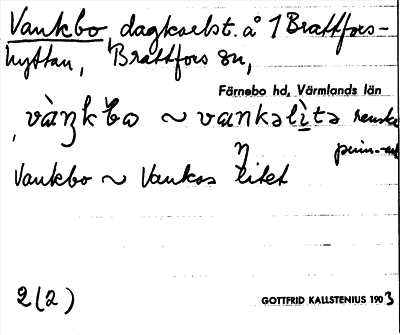 Vankbo, dagkarlst. å 1 Brattfors-
hyttan, Brattfors sn,
Färnebo hd, Värmlands län
vàŋkbo ~ vaŋkəlìtə
Vankbo ~ Vankas litet
2 (2)
GOTTFRID KALLSTENIUS 1903